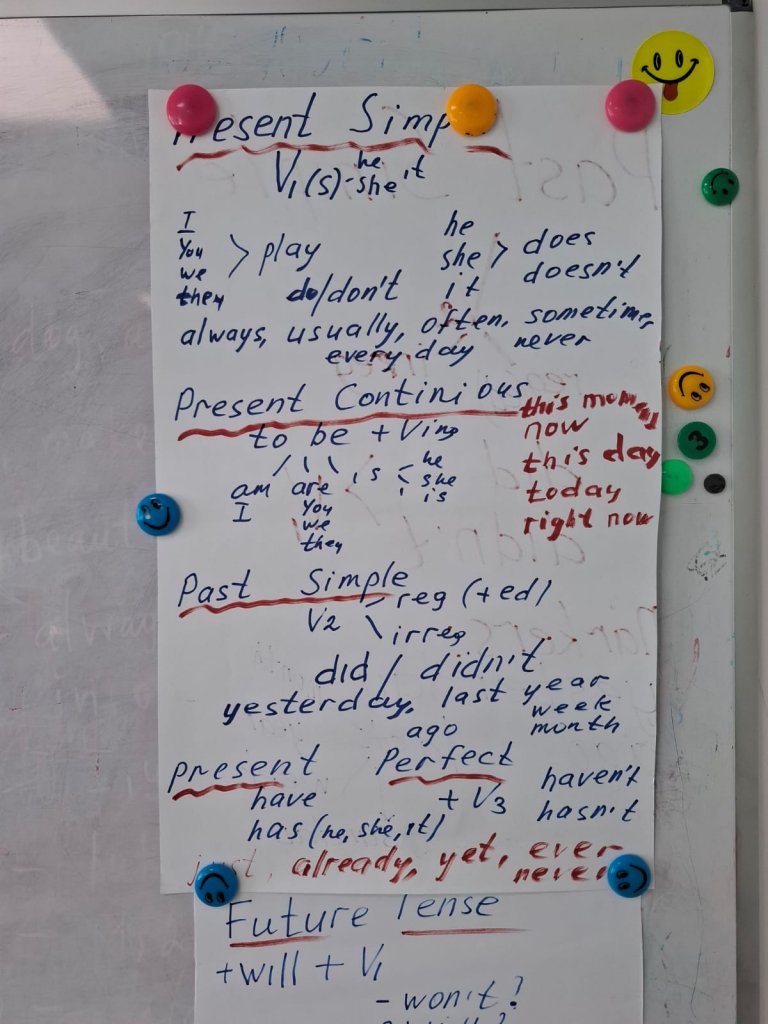 Present Simp
V1(s)-he she it
I
You
we
they
> play
do/don't
he
she
it
> does
doesn't
always, usually, often, sometime,
every day never
Present Continious
to be + Ving
am are is
I
You
we
they
he
she
is
this moment
now
this day
today
right now
Past Simple
V2 reg (+ed)
irreg
did / didn't
yesterday, last year
week
ago month
Present Perfect
have + V3 haven't
has (he, she, it) hasn't
just, already, yet, ever
never
Future Tense
+will + V1
- won't?
3